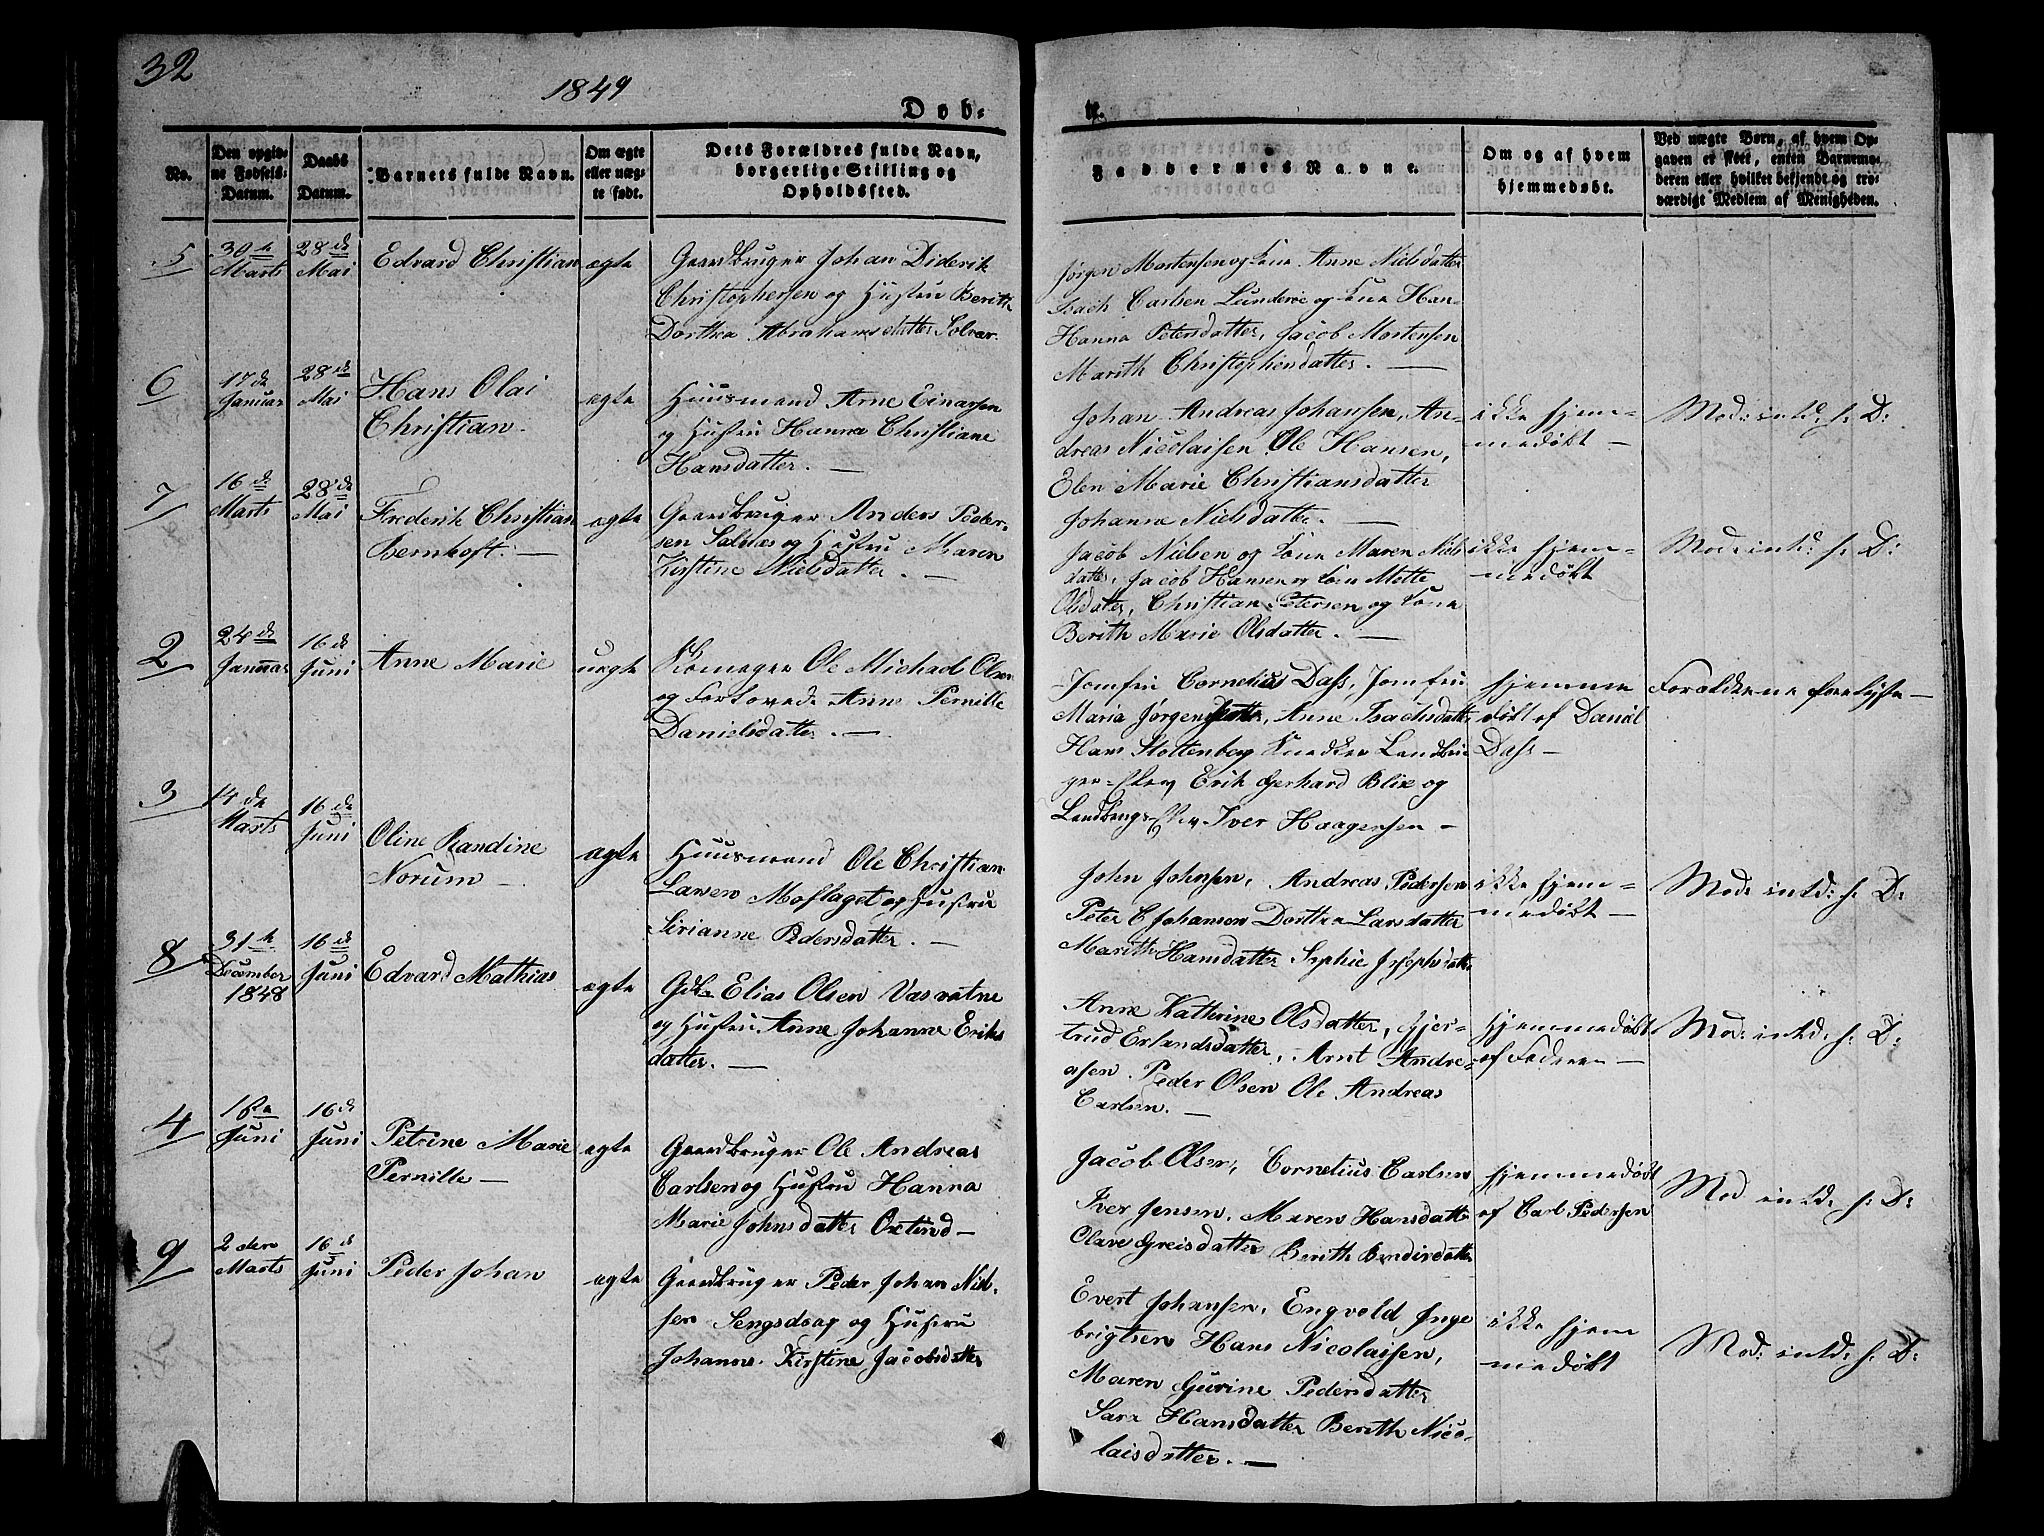 32
1849
Døb-
te.
No.
Den opgiv-
ne Fødsels-
Datum.
Daabs
Datum.
Barnets fulde Navn.
Om ægte
eller uæg-
te født.
Dets Forældres fulde Navn,
borgerlige Stilling og
Opholdssted.
Faddernes Navne.
Om og af hvem
hjemmedøbt.
Ved uægte Børn, af hvem Op-
gaven er skeet, enten Barnemo-
deren eller hvilket bekjendt og tro-
værdigt Medlem af Menigheden.
5
30te
Marts
28de
Mai
Edvard Christian
ægte
Gaardbruger Johan Diderik
Christophersen og Hustru Berith
Dorthea Abrahamsdatter Solvær
Jørgen Mortensen og Kone Anne Nielsdatter
Isach Carlsen Lunderøe og Kone Han-
Hanna Petersdatter, Jacob Mortensen
Marith Christophersdatter. —
6
17de
Januar
28de
Mai
Hans Olai
Christian
ægte
Huusmand Arne Einarsen
og Hustru Hanna Christiane
Hansdatter. —
Johan Andreas Johansen, An-
dreas Nicolaisen Ole Hansen,
Elen Marie Christiansdatter
Johanne Nielsdatter. —
ikke hjem-
medøbt —
Mod: intd: f: D:
7
16de
Marts
28de
Mai
Frederik Christian
Bernhoft. —
ægte
Gaardbruger Anders Peder-
sen og Hustru Maren
Kirstine Nielsdatter. —
Jacob Nielsen og Kone Maren Niels
datter, Jacob Hansen og Kone Mette
Olsdatter, Christian Petersen og Kone
Berith Marie Olsdatter. —
ikke hjem-
medøbt
Mod: intd: f: D:
2
24de
Januar
16de
Juni
Anne Marie
uægte
Ole Michael Olsen
og Forlovede Anne Pernille
Danielsdatter. —
Jomfru Cornelius Dass, Jomfru
Maria Jørgensdatter, Anne Isachsdatter
Hans Stoltenberg
Erik Gerhard Blix og
Iver Haagensen —
hjemme
døbt af Daniel
Dass —
Forældrene
3
14de
Marts
16de
Juni
Oline Randine
Norum —
ægte
Huusmand Ole Christian
Larsen Moflaget og Hustru
Sirianne Pedersdatter. —
John Johnsen, Andreas Pedersen
Peter C Johansen Dorthea Larsdatter
Marith Hansdatter Sophie Josephsdatter
ikke hjem-
medøbt —
Mod: intd: f: D:
8
31te
December
1848
16de
Juni
Edvard Mathias
ægte
Gdbr Elias Olsen Vasvatne
og Hustru Anne Johanne Eriks
datter. —
Anne Kathrine Olsdatter, Gjer-
trud Erlandsdatter, Arnt Andre-
asen. Peder Olsen Ole Andreas
Carlsen. —
Hjemmedøbt
af Faderen —
Mod: intd: f: D:
4
Juni
16de
Juni
Petrine Marie
Pernille —
ægte
Gaardbruger Ole Andreas
Carlsen og Hustru Hanna
Marie Johnsdatter Oxtind —
Jacob Olsen, Cornelius Carlsen
Iver Jensen, Maren Hansdatter
Olava Greisdatter Berith
hjemmedøbt
af Carl Pedersen
Mod intd: f: D:
9
2den
Marts
16de
Juni
Peder Johan
ægte
Gaardbruger Peder Johan Niel-
sen og Hustru
Johanne Kirstine Jacobsdatter
Evert Johansen, Engvold Inge
brigtsen Hans Nicolaisen,
Maren Gurine Pedersdatter
Sara Hansdatter Berith Nico-
laisdatter. —
ikke hjem
medøbt
Mod: intd: f: D: